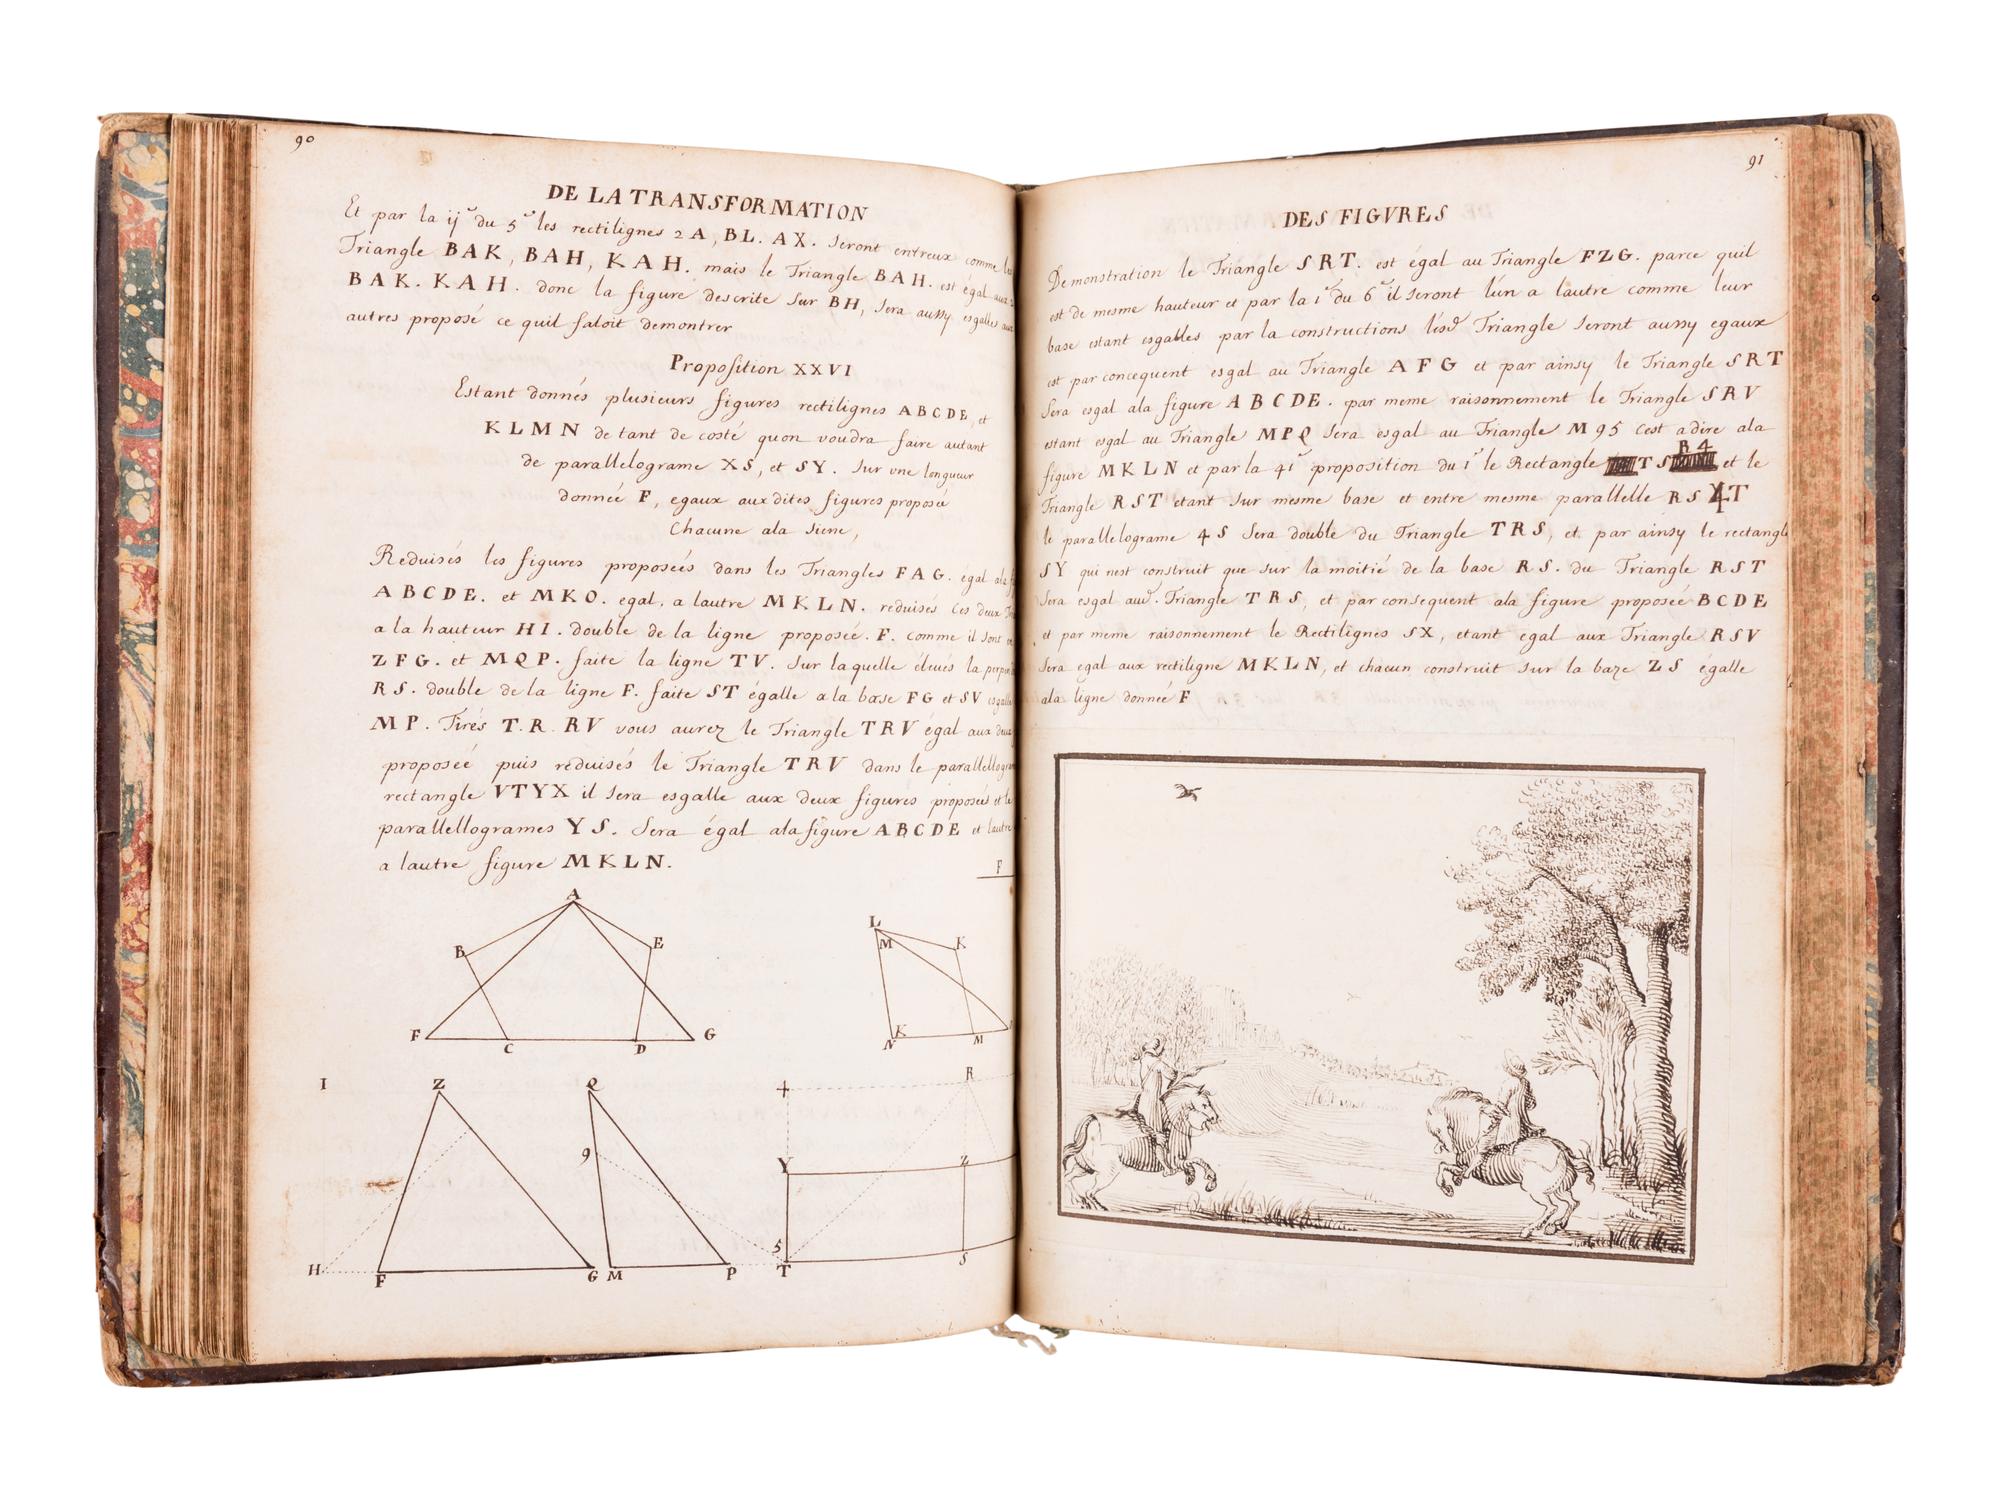 90
DE LA TRANSFORMATION
Et par la ij du 5 les rectilignes 2A, BL. AX. seront entreux comme les
Triangle BAK, BAH, KAH. mais le Triangle BAH. est égal aux 2
BAK. KAH. donc la figure descrite sur BH, sera aussy esgalles aux
autres proposé ce quil faloit demontrer
Proposition XXVI
Estant donnés plusieurs figures rectilignes ABCDE, et
KLMN de tant de costé quon voudra faire autant
de parallelograme XS, et SY. sur une longueur
donneé F, egaux aux dites figures proposé
Chacune ala siene,
Reduisés les figures proposeés dans les Triangles FAG. égal ala
ABCDE. et MKO. egal, a lautre MKLN. reduisés ces deux
a la hauteur HI. double de la ligne proposeé. F. comme il sont
ZFG. et MQP. faite la ligne TV. sur laquelle éleués la
RS. double de la ligne F. faite ST égalle a la base FG et SV esgalle
MP. Tirés T.R. RV vous aurez le Triangle TRV égal aux deux
proposeé puis reduisés le Triangle TRV dans le
rectangle VTYX il sera esgalle aux deux figures proposeés et le
parallellogrames YS. Sera égal ala figure ABCDE et lautre
a lautre figure MKLN.
F
A
B E
F C D G
L
M K
K
N M
I Z Q
9
H F G M P
4 R
Y Z
5
T S
91
DES FIGVRES
Demonstration le Triangle SRT. est égal au Triangle FZG. parce quil
est de mesme hauteur et par la 1 du 6 il seront lún a lautre comme leur
base estant esgables par la constructions Triangle seront aussy egaux
est par concequent esgal au Triangle AFG et par ainsy le Triangle SRT
sera esgal ala figure ABCDE. par meme raisonnement le Triangle SRV
estant esgal au Triangle MPQ sera esgal au Triangle M95 cest adire ala
figure MKLN et par la 41 proposition du 1 le Rectangle TS R4 et le
Triangle RST etant sur mesme base et entre mesme parallelle RS4T
le parallelograme 4S sera double du Triangle TRS, et par ainsy le rectangle
SY qui nest construit que sur la moitié de la base RS. du Triangle RST
sera esgal Triangle TRS, et par consequent ala figure proposeé BCDE
et par meme raisonnement le Rectilignes SX, etant egal aux Triangle RSV
sera egal aux rectiligne MKLN, et chacun construit sur la baze ZS égalle
ala ligne donneé F